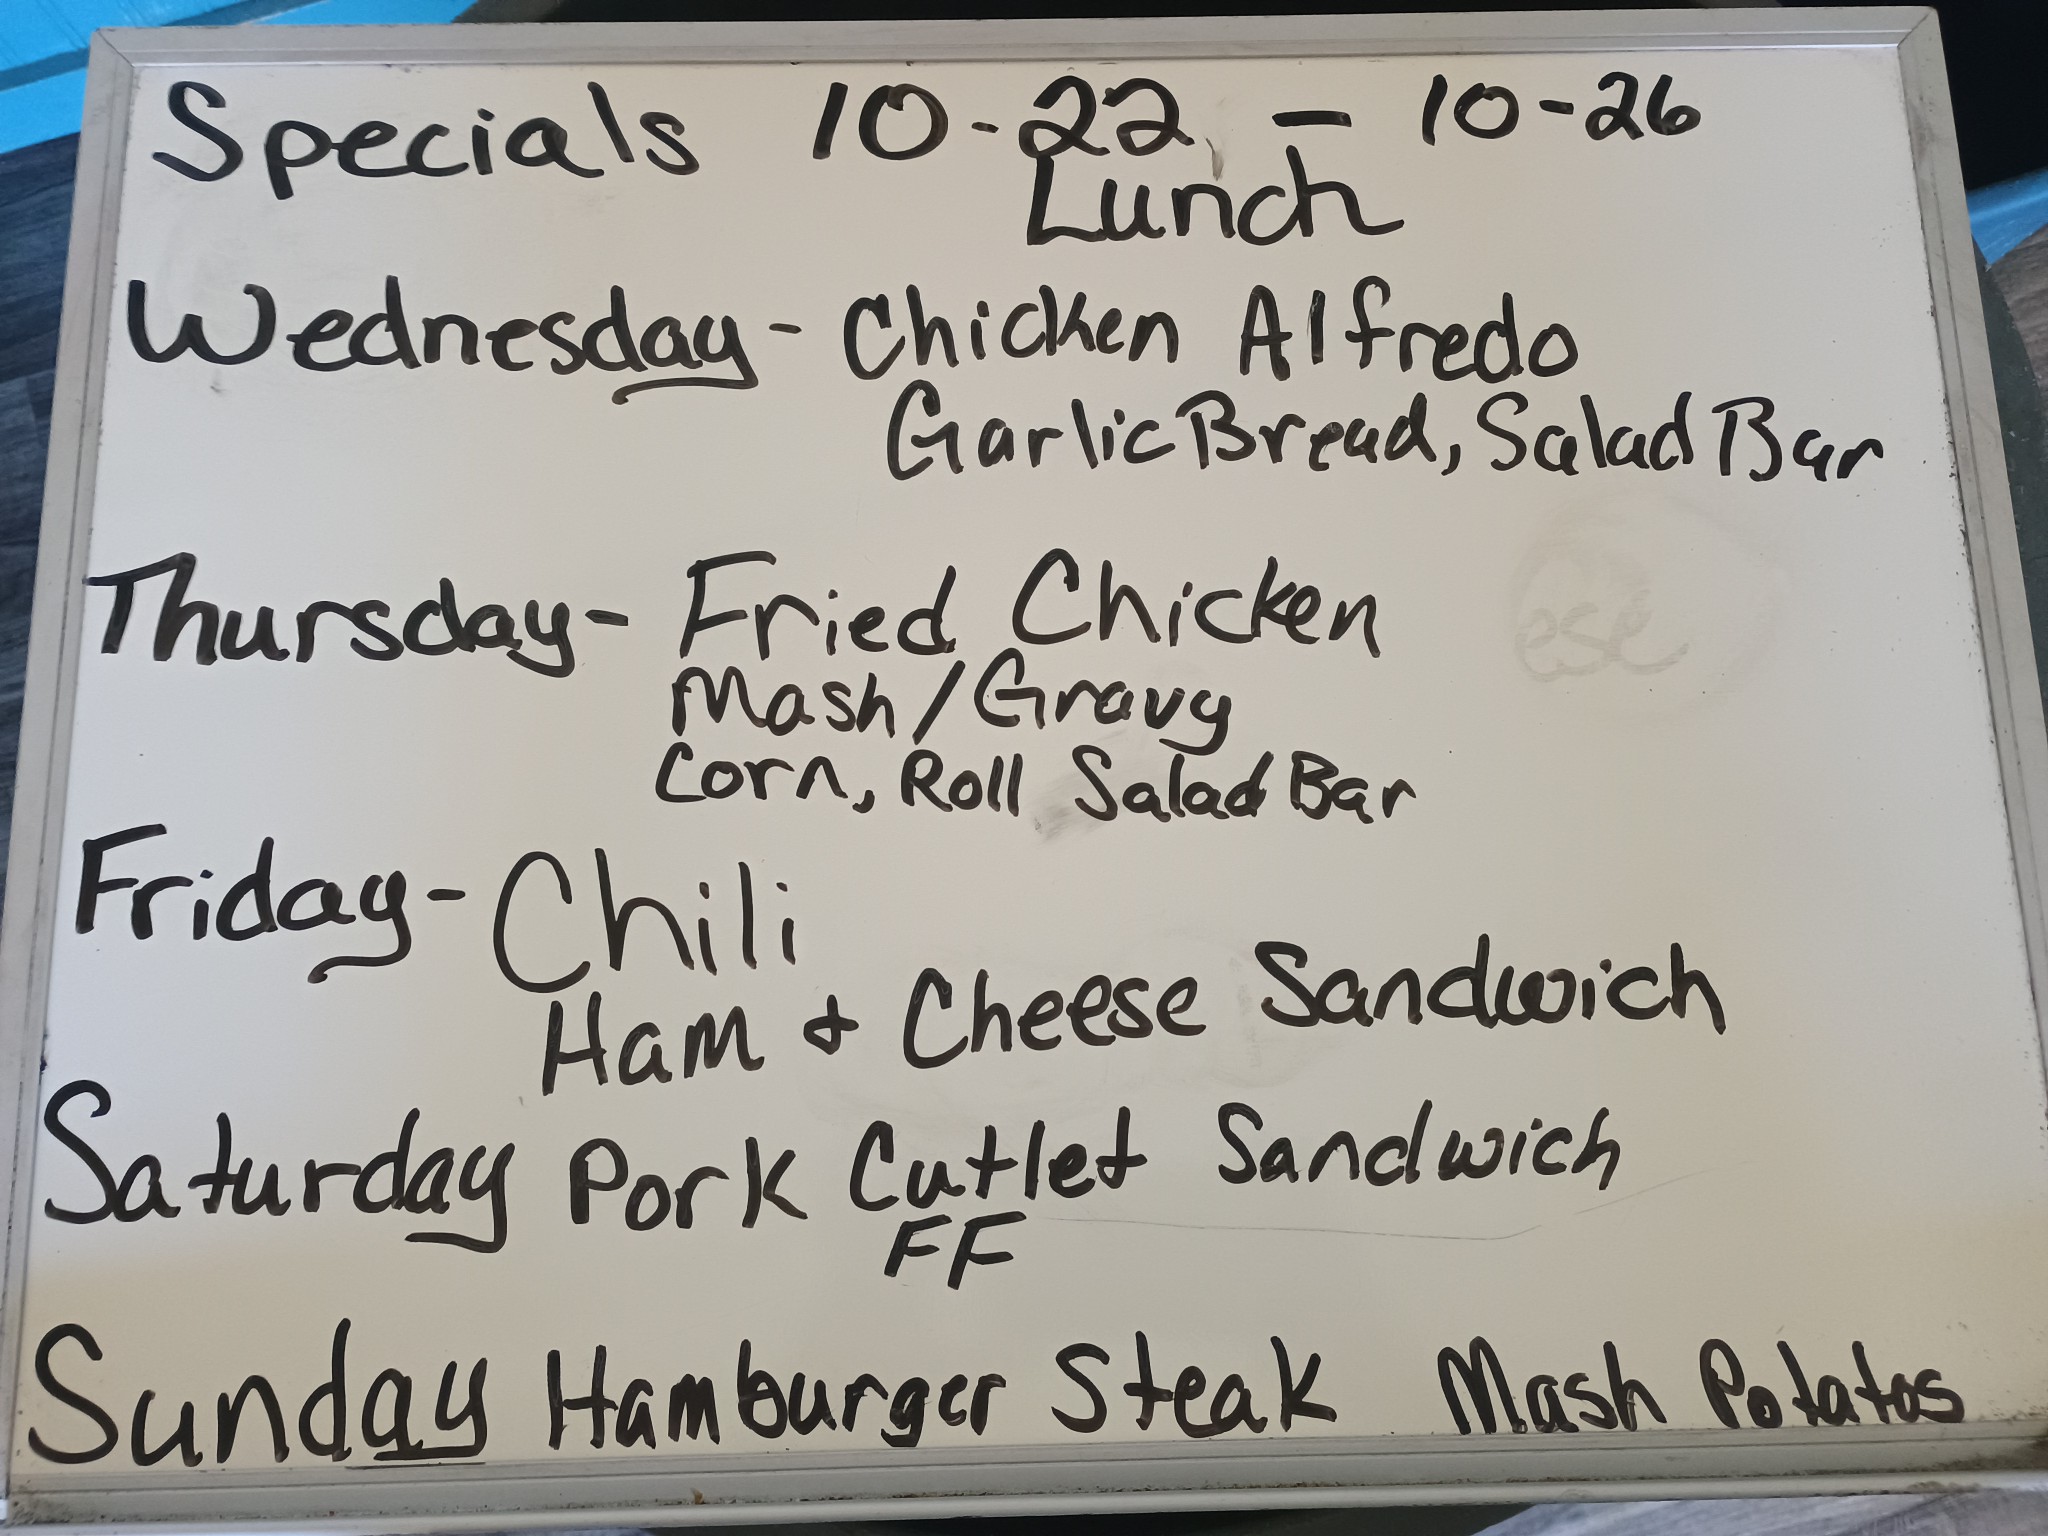 Specials 10-22 - 10-26
Lunch
Wednesday - Chicken Alfredo
Garlic Bread, Salad Bar
Thursday - Fried Chicken
Mash/Gravy
Corn, Roll Salad Bar
Friday - Chili
Ham & Cheese Sandwich
Saturday Pork Cutlet Sandwich
FF
Sunday Hamburger Steak Mash Potatos